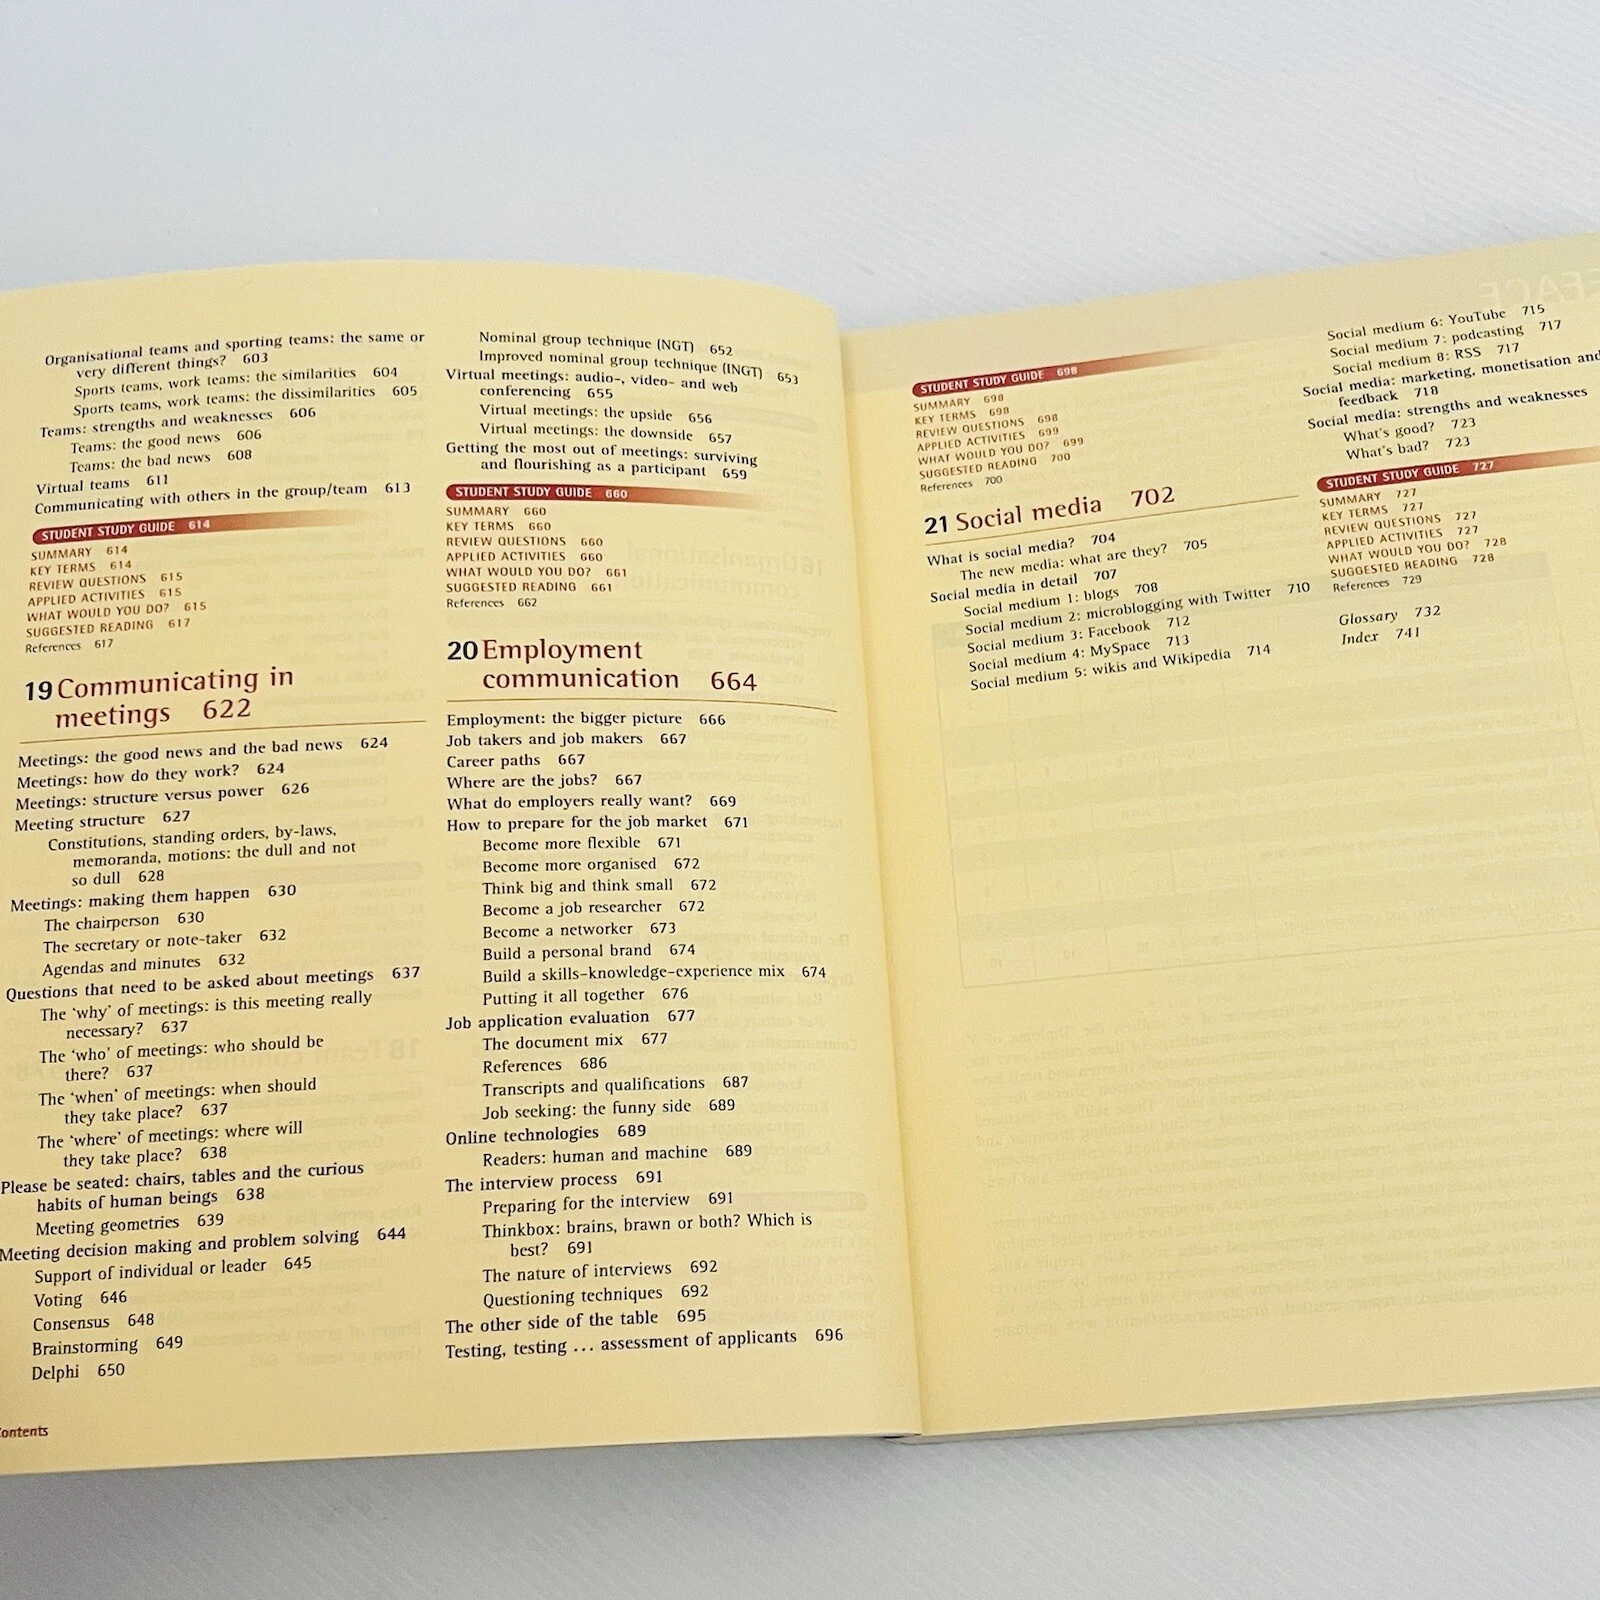 Organisational teams and sporting teams: the same or
very different things? 603
Sports teams, work teams: the similarities 604
Sports teams, work teams: the dissimilarities 605
Teams: strengths and weaknesses 606
Teams: the good news 606
Teams: the bad news 608
Virtual teams 611
Communicating with others in the group/team 613
STUDENT STUDY GUIDE 614
SUMMARY 614
KEY TERMS 614
REVIEW QUESTIONS 615
APPLIED ACTIVITIES 615
WHAT WOULD YOU DO? 615
SUGGESTED READING 617
References 617
19 Communicating in
meetings 622
Meetings: the good news and the bad news 624
Meetings: how do they work? 624
Meetings: structure versus power 626
Meeting structure 627
Constitutions, standing orders, by-laws,
memoranda, motions: the dull and not
so dull 628
Meetings: making them happen 630
The chairperson 630
The secretary or note-taker 632
Agendas and minutes 632
Questions that need to be asked about meetings 637
The 'why' of meetings: is this meeting really
necessary? 637
The 'who' of meetings: who should be
there? 637
The 'when' of meetings: when should
they take place? 637
The 'where' of meetings: where will
they take place? 638
Please be seated: chairs, tables and the curious
habits of human beings 638
Meeting geometries 639
Meeting decision making and problem solving 644
Support of individual or leader 645
Voting 646
Consensus 648
Brainstorming 649
Delphi 650
Contents
Nominal group technique (NGT) 652
Improved nominal group technique (INGT) 653
Virtual meetings: audio-, video- and web
conferencing 655
Virtual meetings: the upside 656
Virtual meetings: the downside 657
Getting the most out of meetings: surviving
and flourishing as a participant 659
STUDENT STUDY GUIDE 660
SUMMARY 660
KEY TERMS 660
REVIEW QUESTIONS 660
APPLIED ACTIVITIES 660
WHAT WOULD YOU DO? 661
SUGGESTED READING 661
References 662
20 Employment
communication 664
Employment: the bigger picture 666
Job takers and job makers 667
Career paths 667
Where are the jobs? 667
What do employers really want? 669
How to prepare for the job market 671
Become more flexible 671
Become more organised 672
Think big and think small 672
Become a job researcher 672
Become a networker 673
Build a personal brand 674
Build a skills-knowledge-experience mix 674
Putting it all together 676
Job application evaluation 677
The document mix 677
References 686
Transcripts and qualifications 687
Job seeking: the funny side 689
Online technologies 689
Readers: human and machine 689
The interview process 691
Preparing for the interview 691
Thinkbox: brains, brawn or both? Which is
best? 691
The nature of interviews 692
Questioning techniques 692
The other side of the table 695
Testing, testing ... assessment of applicants 696
STUDENT STUDY GUIDE 698
SUMMARY 698
KEY TERMS 698
REVIEW QUESTIONS 698
APPLIED ACTIVITIES 699
WHAT WOULD YOU DO? 699
SUGGESTED READING 700
References 700
21 Social media 702
What is social media? 704
The new media: what are they? 705
Social media in detail 707
Social medium 1: blogs 708
Social medium 2: microblogging with Twitter 710
Social medium 3: Facebook 712
Social medium 4: MySpace 713
Social medium 5: wikis and Wikipedia 714
Social medium 6: YouTube 715
Social medium 7: podcasting 717
Social medium 8: RSS 717
Social media: marketing, monetisation and
feedback 718
Social media: strengths and weaknesses
What's good? 723
What's bad? 723
STUDENT STUDY GUIDE 727
SUMMARY 727
KEY TERMS 727
REVIEW QUESTIONS 727
APPLIED ACTIVITIES 727
WHAT WOULD YOU DO? 728
SUGGESTED READING 728
References 729
Glossary 732
Index 741